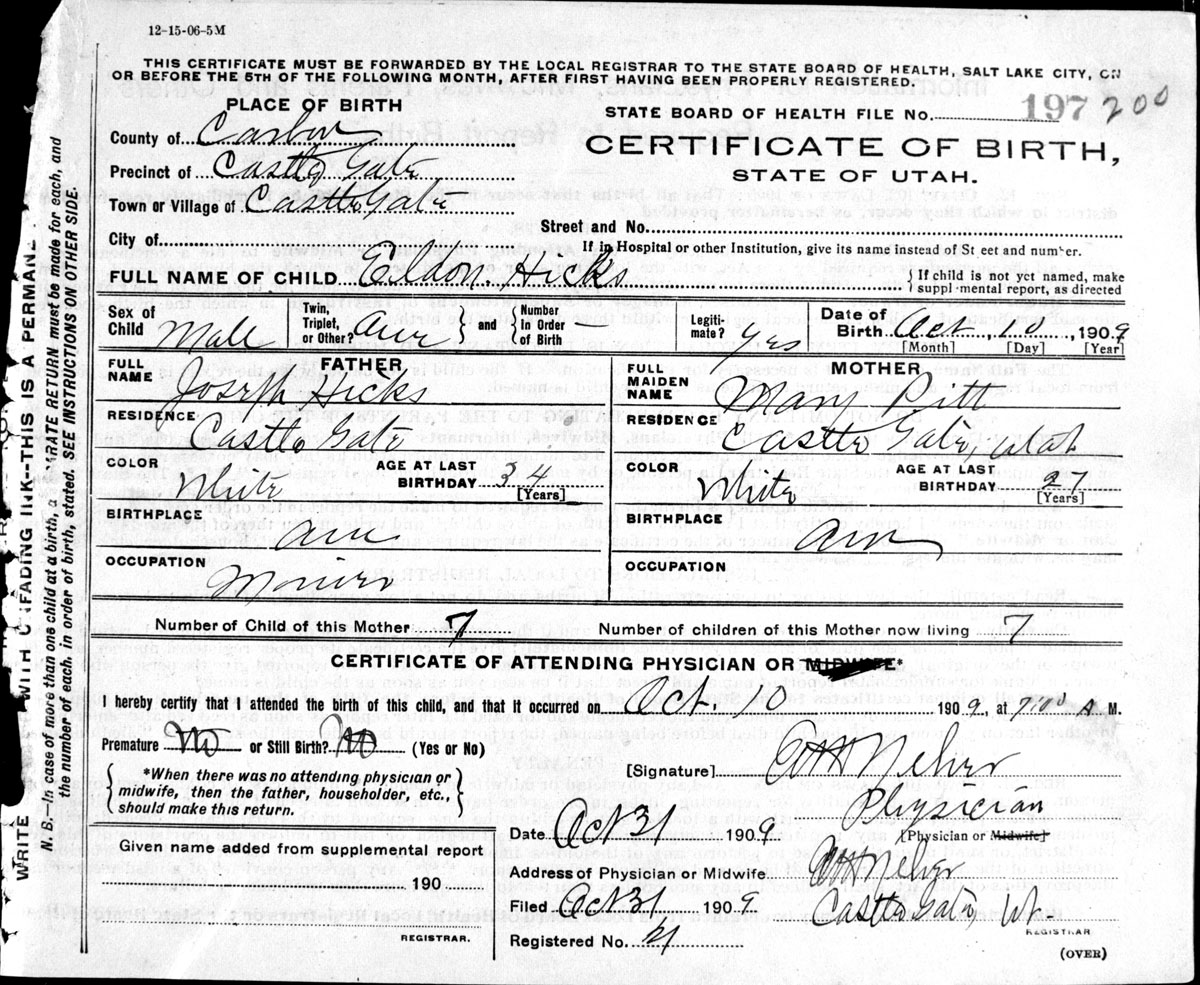 12-15-06-5M
THIS CERTIFICATE MUST BE FORWARDED BY THE LOCAL REGISTRAR TO THE STATE BOARD OF HEALTH, SALT LAKE CITY, ON
OR BEFORE THE 5TH OF THE FOLLOWING MONTH, AFTER FIRST HAVING BEEN PROPERLY REGISTERED
PLACE OF BIRTH
STATE BOARD OF HEALTH FILE No. 197 200
County of Carbon
CERTIFICATE OF BIRTH,
Precinct of Castle Gate
STATE OF UTAH.
Town or Village of Castle Gate
Street and No.
City of
If in Hospital or other Institution, give its name instead of St eet and number.
FULL NAME OF CHILD Eldon Hicks
{ If child is not yet named, make
suppl mental report, as directed
Sex of Child Male
Twin, Triplet, or Other? { and } Number In Order of Birth –
Legiti- mate? yes
Date of Birth Oct 10, 1909
[Month] [Day] [Year]
FATHER
FULL NAME Joseph Hicks
MOTHER
FULL MAIDEN NAME Mary Pitt
RESIDENCE Castle Gate
RESIDENCE Castle Gate, Utah
COLOR White
AGE AT LAST BIRTHDAY 34
[Years]
COLOR White
AGE AT LAST BIRTHDAY 27
[Years]
BIRTHPLACE
BIRTHPLACE
OCCUPATION
OCCUPATION
Number of Child of this Mother 7
Number of children of this Mother now living 7
CERTIFICATE OF ATTENDING PHYSICIAN OR MIDWIFE*
I hereby certify that I attended the birth of this child, and that it occurred on Oct. 10 1909, at 7:00 A M.
Premature No or Still Birth? No (Yes or No)
{ *When there was no attending physician or
midwife, then the father, householder, etc.,
should make this return. }
[Signature]
Physician
[Physician or Midwife]
Date Oct 31 1909
Given name added from supplemental report
190
REGISTRAR.
Address of Physician or Midwife
Filed Oct 31 1909 Castle Gate, Ut.
REGISTRAR
Registered No.
(OVER)
WRITE WITH UNFADING INK—THIS IS A PERMAN
N. B.—In case of more than one child at a birth, a ARATE RETURN must be made for each, and
the number of each, in order of birth, stated. SEE INSTRUCTIONS ON OTHER SIDE.